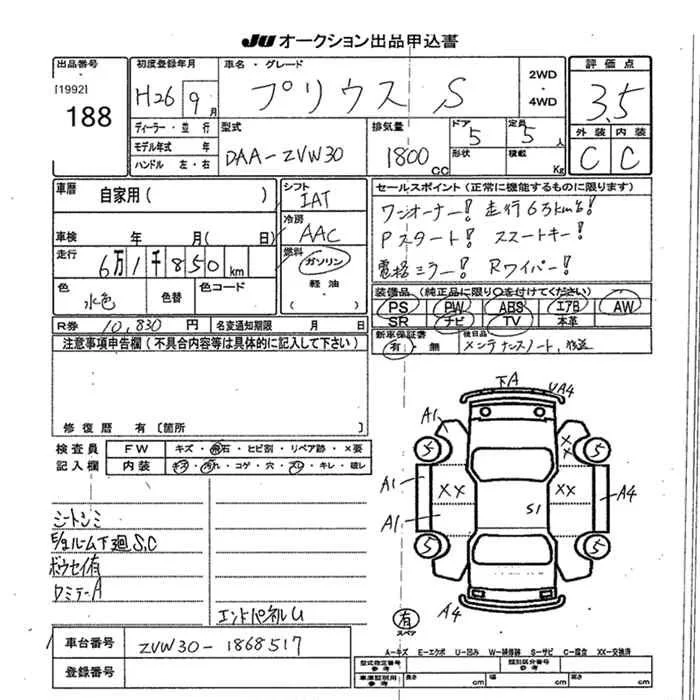 JU オークション出品申込書
出品番号
[1992]
188
初度登録年月
H26 9月
車名・グレード
プリウス S
2WD
・
4WD
評価点
3.5
外装 内装
C C
ディーラー・並行
モデル年式 年
ハンドル 左・右
型式
DAA-ZVW30
排気量
1800 CC
ドア 5
形状
定員 5人
積載 Kg
車歴 自家用( )
シフト
IAT
車検 年 月( 日)
冷房
AAC
走行
6万1千850km
燃料
ガソリン
・
軽油
( )
色
水色
色替
色コード
R券 10,830円
名変通知期限 月 日
セールスポイント(正常に機能するものに限ります)
ワンオーナー! 走行6万km台!
Pスタート! スマートキー!
電格ミラー! Rワイパー!
装備品(純正品に限り○を付けてください)
PS PW ABS エアB AW
SR ナビ TV 本革
新車保証書
有・無
後日品
メンテナンスノート,
注意事項申告欄(不具合内容等は具体的に記入して下さい)
修復歴 有〔箇所 〕
検査員
記入欄
FW キズ・飛石・ヒビ割・リペア跡・×要
内装 キズ・汚れ・コゲ・穴・スレ・キレ・破レ
シートシミ
E/gルーム下廻S,C
ボウセイ有
ワミテーA
エンドパネルU
下A
UA4
A1
5
5
XX
A1
XX
XX
A4
A1
S1
5
5
A4
有
スペア
車台番号 ZVW30-1868517
登録番号
A-キズ E-エクボ U-凹み W-補修跡 S-サビ C-腐食 XX-交換済
型式指定番号
参考
類別区分番号
参考
車庫証明用
参考
長さ cm
幅 cm
高さ cm